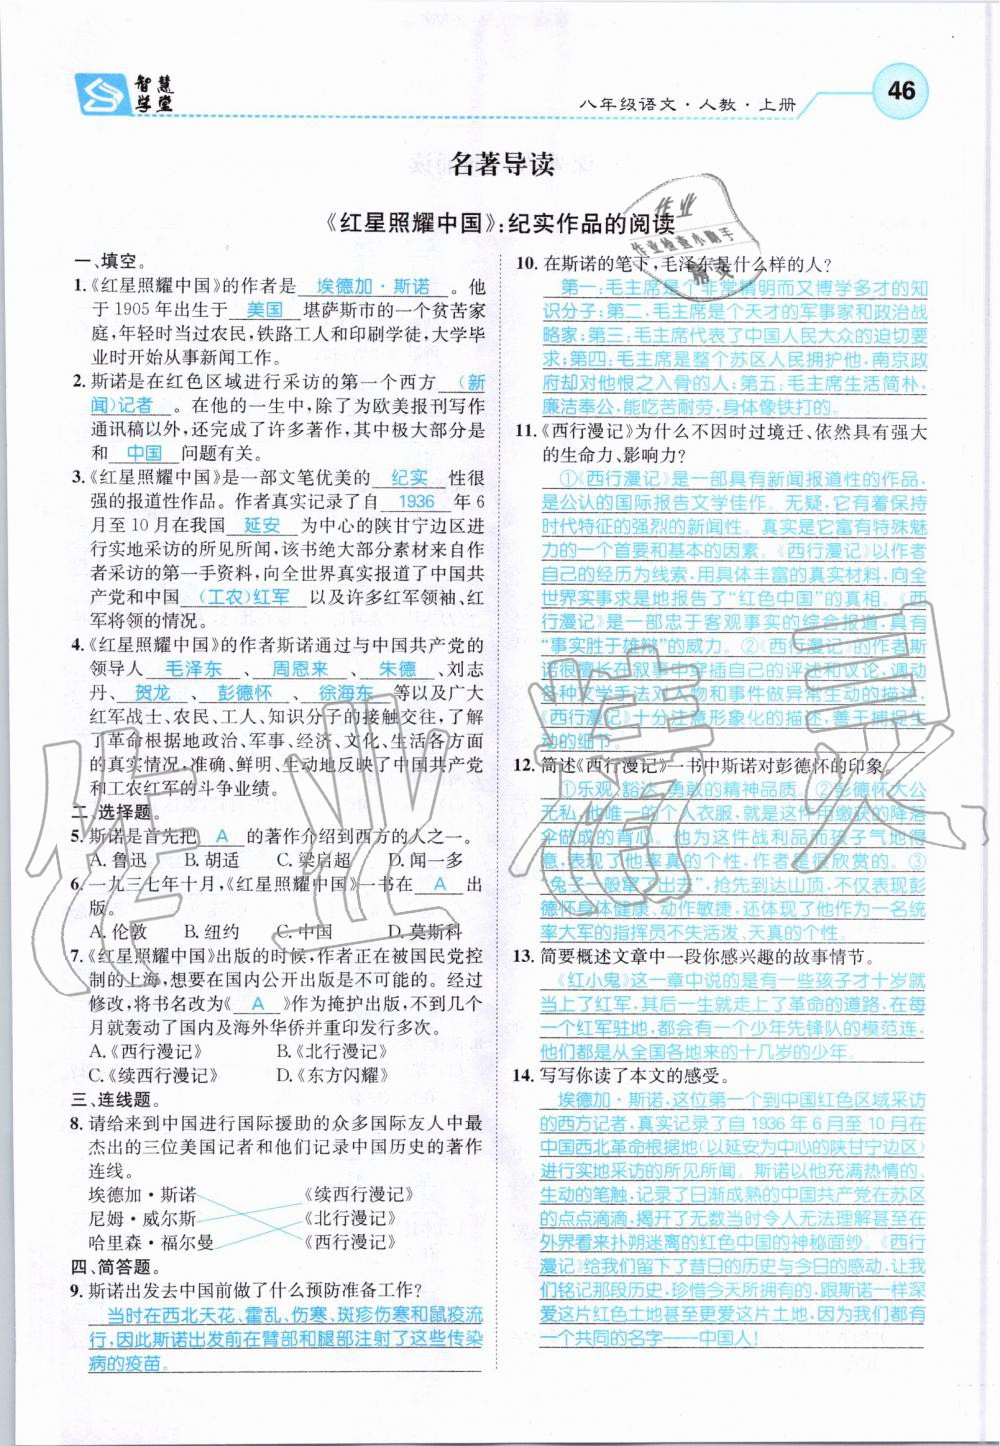 智慧学堂
八年级语文·人教·上册
46
名著导读
《红星照耀中国》:纪实作品的阅读
一、填空。
1.《红星照耀中国》的作者是 埃德加·斯诺 。他
于1905年出生于 美国 堪萨斯市的一个贫苦家
庭,年轻时当过农民,铁路工人和印刷学徒,大学毕
业时开始从事新闻工作。
2.斯诺是在红色区域进行采访的第一个西方 (新
闻)记者 。在他的一生中,除了为欧美报刊写作
通讯稿以外,还完成了许多著作,其中极大部分是
和 中国 问题有关。
3.《红星照耀中国》是一部文笔优美的 纪实 性很
强的报道性作品。作者真实记录了自 1936 年6
月至10月在我国 延安 为中心的陕甘宁边区进
行实地采访的所见所闻,该书绝大部分素材来自作
者采访的第一手资料,向全世界真实报道了中国共
产党和中国 (工农)红军 以及许多红军领袖、红
军将领的情况。
4.《红星照耀中国》的作者斯诺通过与中国共产党的
领导人 毛泽东 、 周恩来 、 朱德 、刘志
丹、 贺龙 、 彭德怀 、 徐海东 等以及广大
红军战士、农民、工人、知识分子的接触交往,了解
了革命根据地政治、军事、经济、文化、生活各方面
的真实情况,准确、鲜明、生动地反映了中国共产党
和工农红军的斗争业绩。
二、选择题。
5.斯诺是首先把 A 的著作介绍到西方的人之一。
A.鲁迅 B.胡适 C.梁启超 D.闻一多
6.一九三七年十月,《红星照耀中国》一书在 A 出
版。
A.伦敦 B.纽约 C.中国 D.莫斯科
7.《红星照耀中国》出版的时候,作者正在被国民党控
制的上海,想要在国内公开出版是不可能的。经过
修改,将书名改为《 A 》作为掩护出版,不到几个
月就轰动了国内及海外华侨并重印发行多次。
A.《西行漫记》 B.《北行漫记》
C.《续西行漫记》 D.《东方闪耀》
三、连线题。
8.请给来到中国进行国际援助的众多国际友人中最
杰出的三位美国记者和他们记录中国历史的著作
连线。
埃德加·斯诺 《续西行漫记》
尼姆·威尔斯 《北行漫记》
哈里森·福尔曼 《西行漫记》
四、简答题。
9.斯诺出发去中国前做了什么预防准备工作?
当时在西北天花、霍乱、伤寒、斑疹伤寒和鼠疫流
行,因此斯诺出发前在臂部和腿部注射了这些传染
病的疫苗。
10.在斯诺的笔下,毛泽东是什么样的人?
第一:毛主席是个非常精明而又博学多才的知
识分子;第二,毛主席是个天才的军事家和政治战
略家;第三:毛主席代表了中国人民大众的迫切要
求;第四:毛主席是整个苏区人民拥护他,南京政
府却对他恨之入骨的人;第五:毛主席生活简朴,
廉洁奉公,能吃苦耐劳,身体像铁打的。
11.《西行漫记》为什么不因时过境迁、依然具有强大
的生命力、影响力?
①《西行漫记》是一部具有新闻报道性的作品,
是公认的国际报告文学佳作。无疑,它有着保持
时代特征的强烈的新闻性。真实是它富有特殊魅
力的一个首要和基本的因素。《西行漫记》以作者
自己的经历为线索,用具体丰富的真实材料,向全
世界实事求是地报告了“红色中国”的真相。《西
行漫记》是一部忠于客观事实的综合报道,具有
“事实胜于雄辩”的威力。②《西行漫记》的作者斯
诺很擅长在叙事中穿插自己的评述和议论,调动
各种文学手法对人物和事件做异常生动的描述,
《西行漫记》十分注意形象化的描述,善于捕捉生
动的细节。
12.简述《西行漫记》一书中斯诺对彭德怀的印象。
①乐观、豁达、勇敢的精神品质。②彭德怀大公
无私,他唯一的个人衣服,就是这件用缴获的降落
伞做成的背心。他为这件战利品而孩子气地得
意,表现了他率真的个性,作者是很欣赏的。③
“兔子一般窜了出去”,抢先到达山顶,不仅表现彭
德怀身体健康、动作敏捷,还体现了他作为一名统
率大军的指挥员不失活泼、天真的个性。
13.简要概述文章中一段你感兴趣的故事情节。
《红小鬼》这一章中说的是有一些孩子才十岁就
当上了红军,其后一生就走上了革命的道路,在每
一个红军驻地,都会有一个少年先锋队的模范连,
他们是从全国各地来的十几岁的少年。
14.写写你读了本文的感受。
埃德加·斯诺,这位第一个到中国红色区域采访
的西方记者,真实记录了自1936年6月至10月在
中国西北革命根据地(以延安为中心的陕甘宁边区)
进行实地采访的所见所闻。斯诺以他充满热情的、
生动的笔触,记录了日渐成熟的中国共产党在苏区
的点点滴滴,揭开了无数当时令人无法理解甚至在
外界看来扑朔迷离的红色中国的神秘面纱。《西行
漫记》给我们留下了昔日的历史与今日的感动,让我
们铭记那段历史,珍惜今天所拥有的,跟斯诺一样深
爱这片红色土地甚至更爱这片土地,因为我们都有
一个共同的名字——中国人!
作业
作业检查小助手
精灵
作业精灵